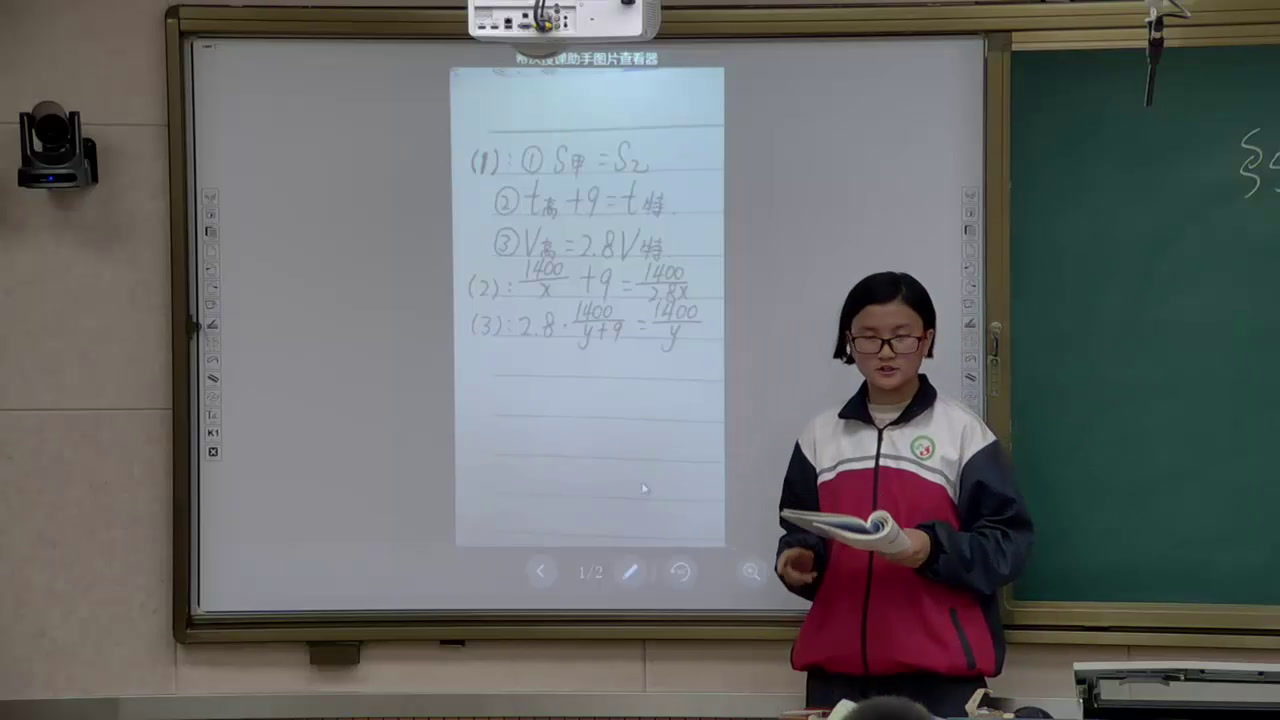 授课助手图片查看器
(1): ① S甲 = S乙
② t高 + 9 = t特.
③ V高 = 2.8V特.
(2): 1400/x + 9 = 1400/2.8x
(3): 2.8 · 1400/y+9 = 1400/y
1/2
K1